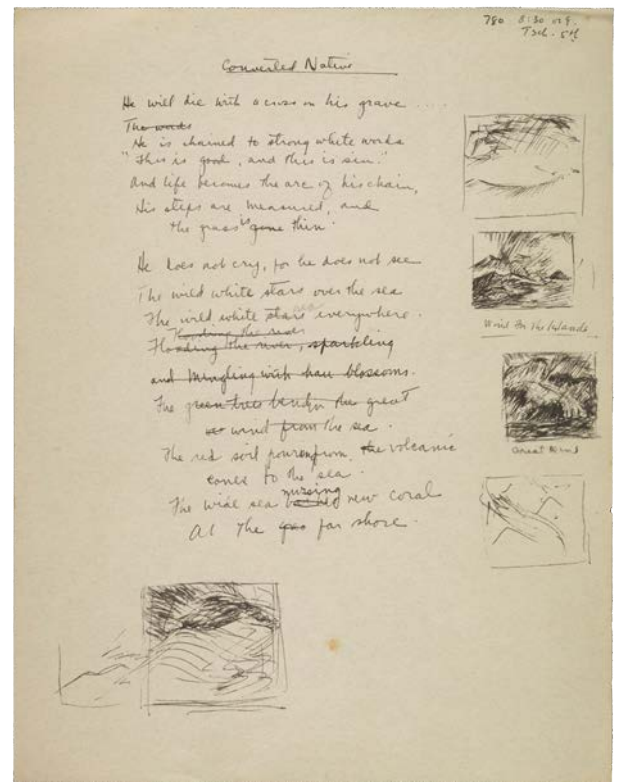 780 8:30
Converted Native
He will die with a cross on his grave ....
The words
He is chained to strong white words
"This is good, and this is sin."
And life becomes the arc of his chain,
His steps are measured, and
the grass is gone thin.
He does not cry, for he does not see
The wild white stars over the sea
The wild white stars everywhere.
Flooding the river
Flooding the river, sparkling
and mingling with hau blossoms.
The green trees bend in the great
wind from the sea.
The red soil pours from the volcanic
cones to the sea.
nursing
The wide sea new coral
At the far shore.
Wind In The Islands
Great Wind